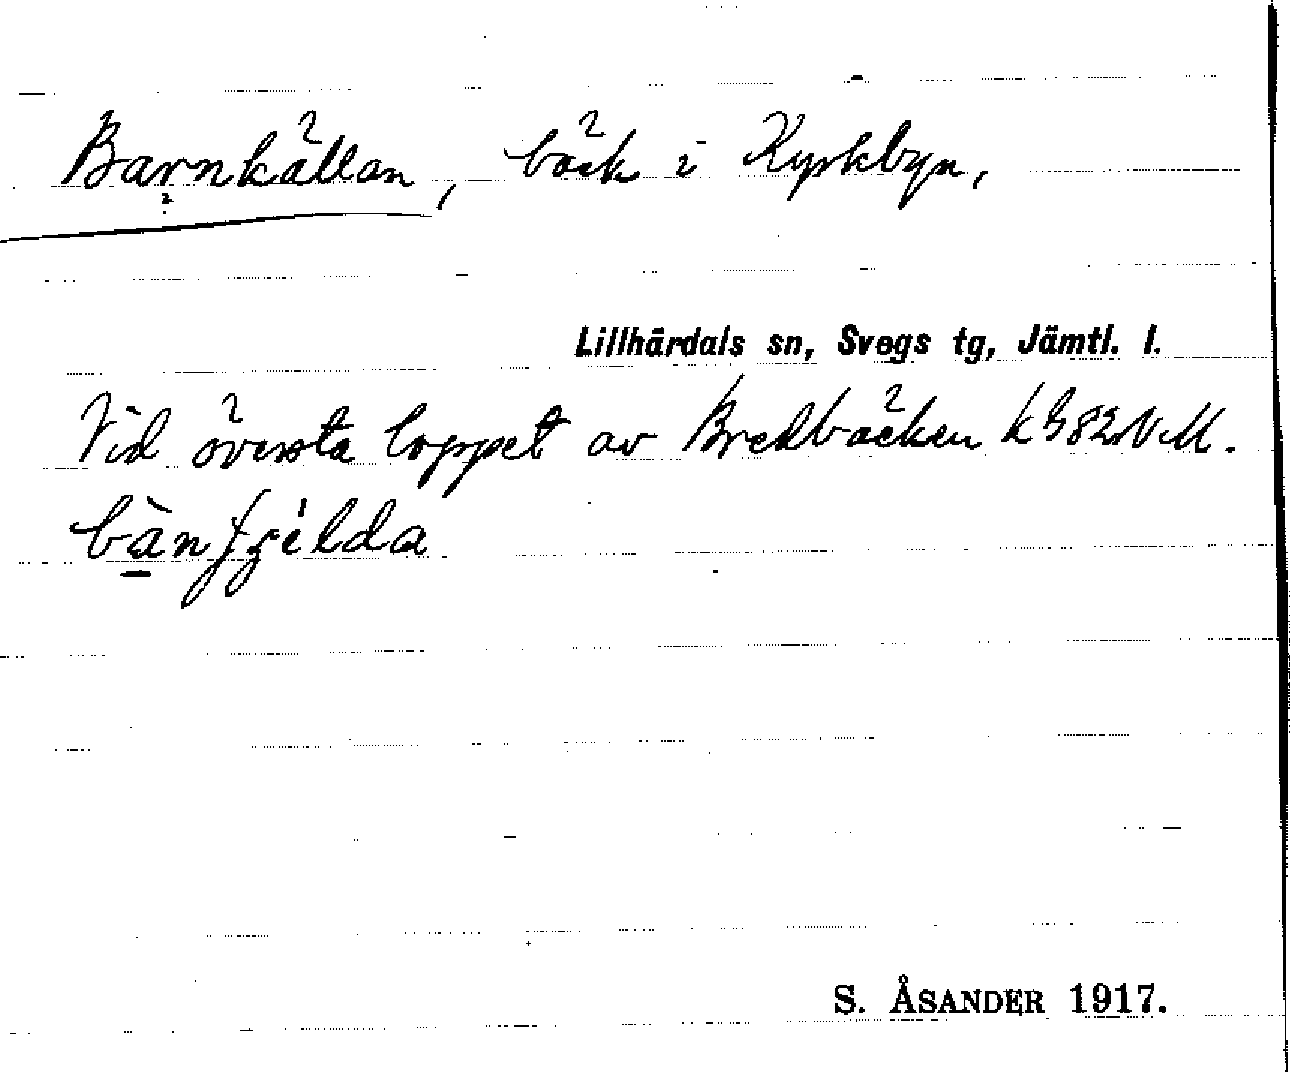 Barnkällan, bäck i Kyrkbyn,
Lillhärdals sn, Svegs tg, Jämtl. l.
Vid översta loppet av Bredbäcken k G82 N.M.
bànfjélda
S. ÅSANDER 1917.